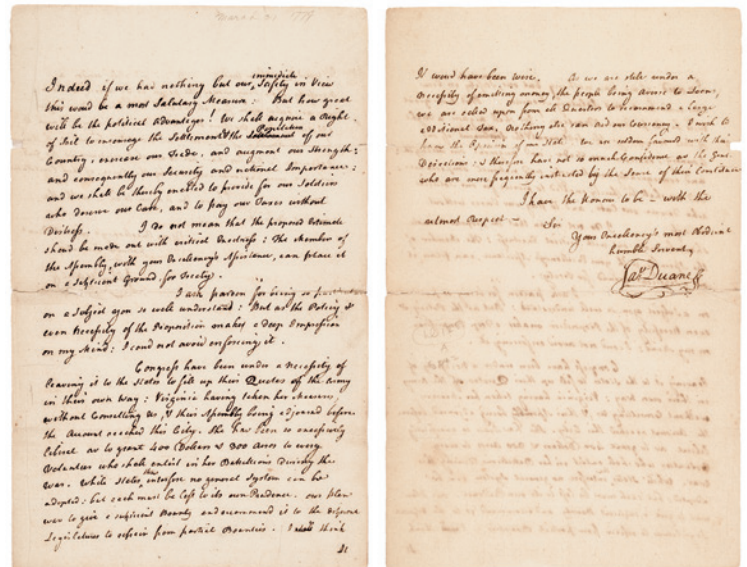 Indeed if we had nothing but our immediate Safety in View
this woud be a most Salutary Measure: But how great
will be the political Advantages! We shall acquire a Right
of Soil to encourage the Settlement & the Population of our
Country, encrease our Trade, and augment our Strength:
and consequently our Security and national Importance:
and we shall be thereby enabled to provide for our Soldiers
who deserve our Care, and to pay our Taxes without
Distress. I do not mean that the proposed Estimate
shoud be made out with critical Exactness: The Members of
the Assembly, with your Excellency's Assistance, can place it
on a sufficient Ground for Treaty.
I ask pardon for being so
on a subject you so well understand: But as the Policy &
even Necessity of the Proposition makes a deep Impression
on my Mind: I coud not avoid enforcing it.
Congress have been under a necessity of
leaving it to the States to fill up their Quotas of the Army
in their own way: Virginia having taken her Measures
without Consulting us, & their Assembly being adjourned before
the Account reached this City. She has been so excessively
liberal as to grant 400 Dollars & 300 Acres to every
Volunteer who shall enlist in her Battalions during the
War. While States thus interfere no general System can be
adopted: but each must be left to its own Prudence. our plan
was to give a sufficient Bounty and recommend it to the different
Legislatures to refrain from partial Bounties. I think
It
It woud have been wise. As we are still under a
Necessity of emitting money, the people being averse to Loans,
we are called upon from all Quarters to recommend a large
additional Tax. Nothing else can aid our Currency. I wish to
know the Opinion of our State. We are seldom favored with their
Directions: & therefore have not so much Confidence as the Gent
who are more frequently instructed by the Sense of their Constituents
I have the Honour to be - with the
utmost Respect -
Sir
Your Excellency's most Obedient
humble Servant,
Jas Duane